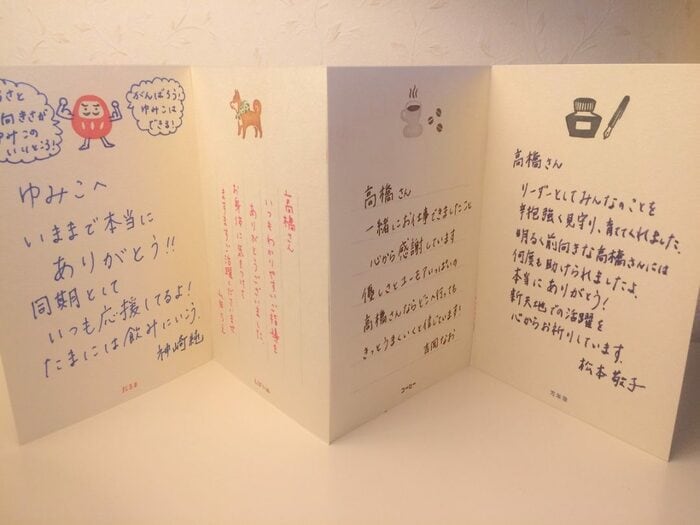 るさと
向きさが
ゆみこの
いいところ!
がんばろう!
ゆみこは
できる!
ゆみこへ
いままで本当に
ありがとう!!
同期として
いつも応援してるよ!
たまには飲みにいこう。
神崎純
だるま
高橋さん
いつもわかりやすいご指導を
ありがとうございました
お身体に気をつけて
ますますご活躍してくださいませ
高橋さん
一緒にお仕事できましたこと
心から感謝しています
優しさとユーモアいっぱいの
高橋さんならどこへ行っても
きっとうまくいくと信じています!
吉岡なお
コーヒー
高橋さん
リーダーとしてみんなのことを
半抱強く見守り、育ててくれました。
明るく前向きな高橋さんには
何度も助けられましたよ
本当にありがとう!
新天地での活躍を
心からお祈りしています。
松本敬子
万年筆